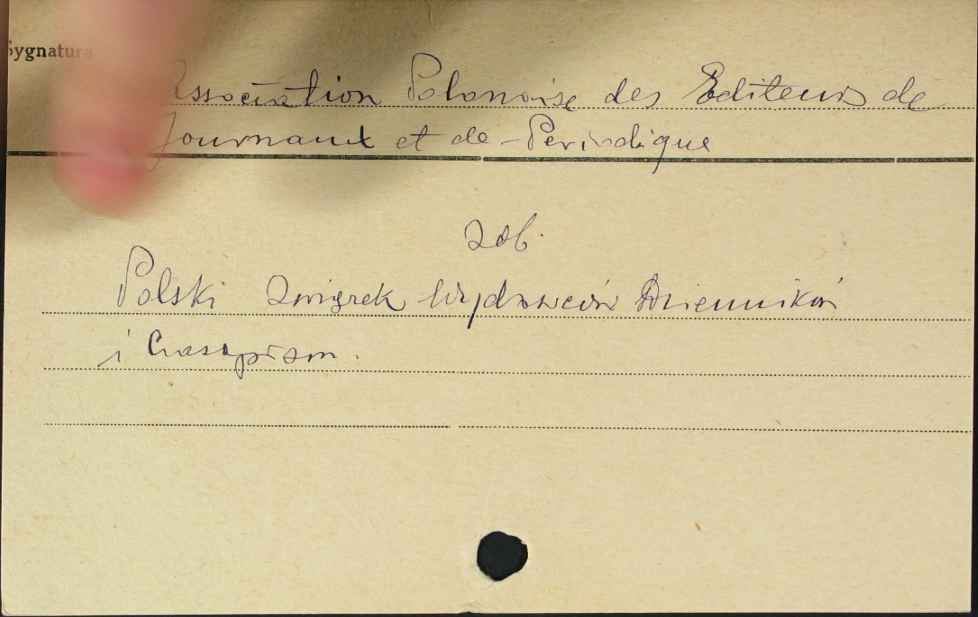 Sygnatura
Association Polonaise des Editeurs de
Journaux et de Periodique
zob.
Polski Związek Wydawców Dzienników
i Czasopism.